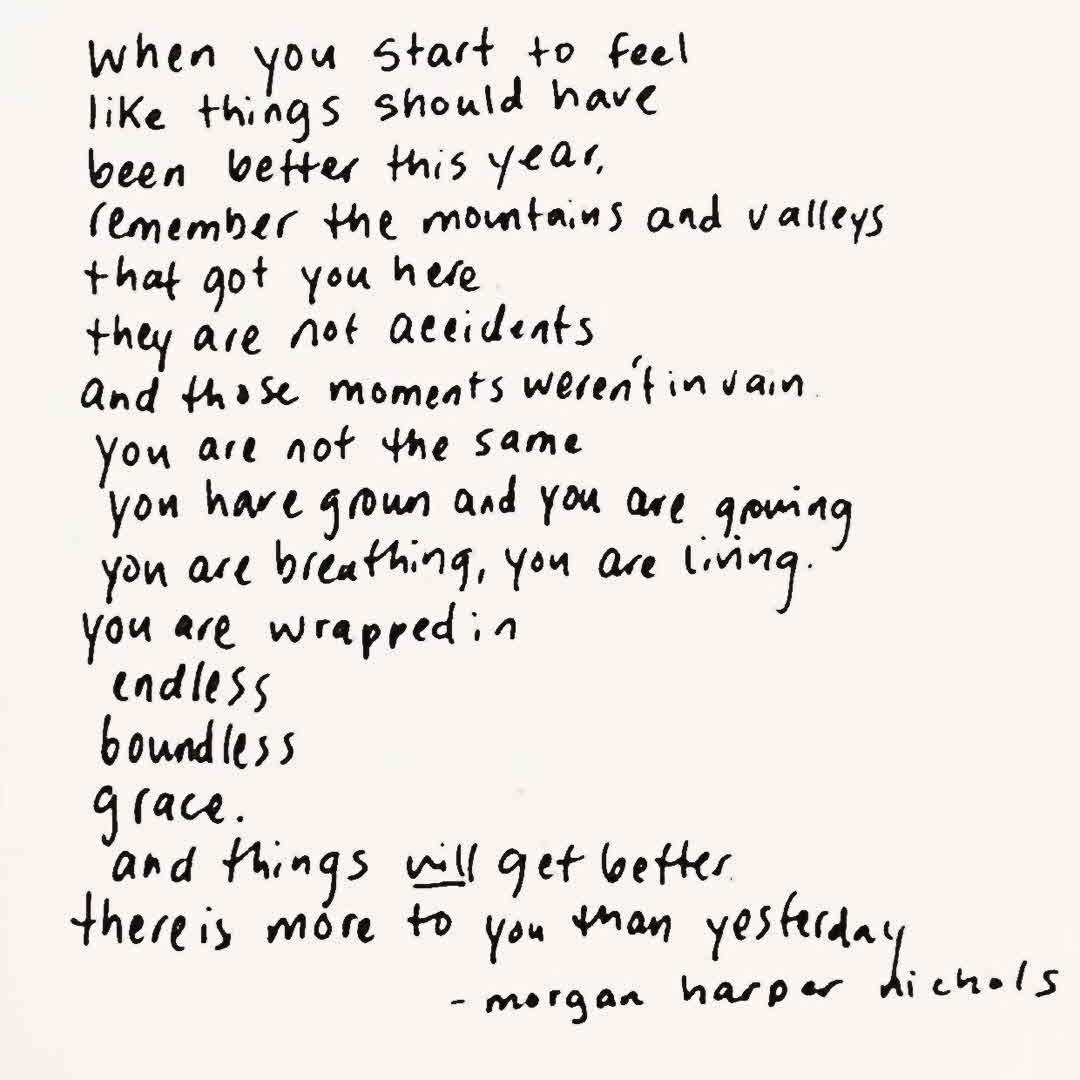 When you start to feel
like things should have
been better this year,
remember the mountains and valleys
that got you here
they are not accidents
and those moments weren't in vain.
you are not the same
you have grown and you are growing
you are breathing, you are living.
you are wrapped in
endless
boundless
grace.
and things will get better.
there is more to you than yesterday
- morgan harper nichols